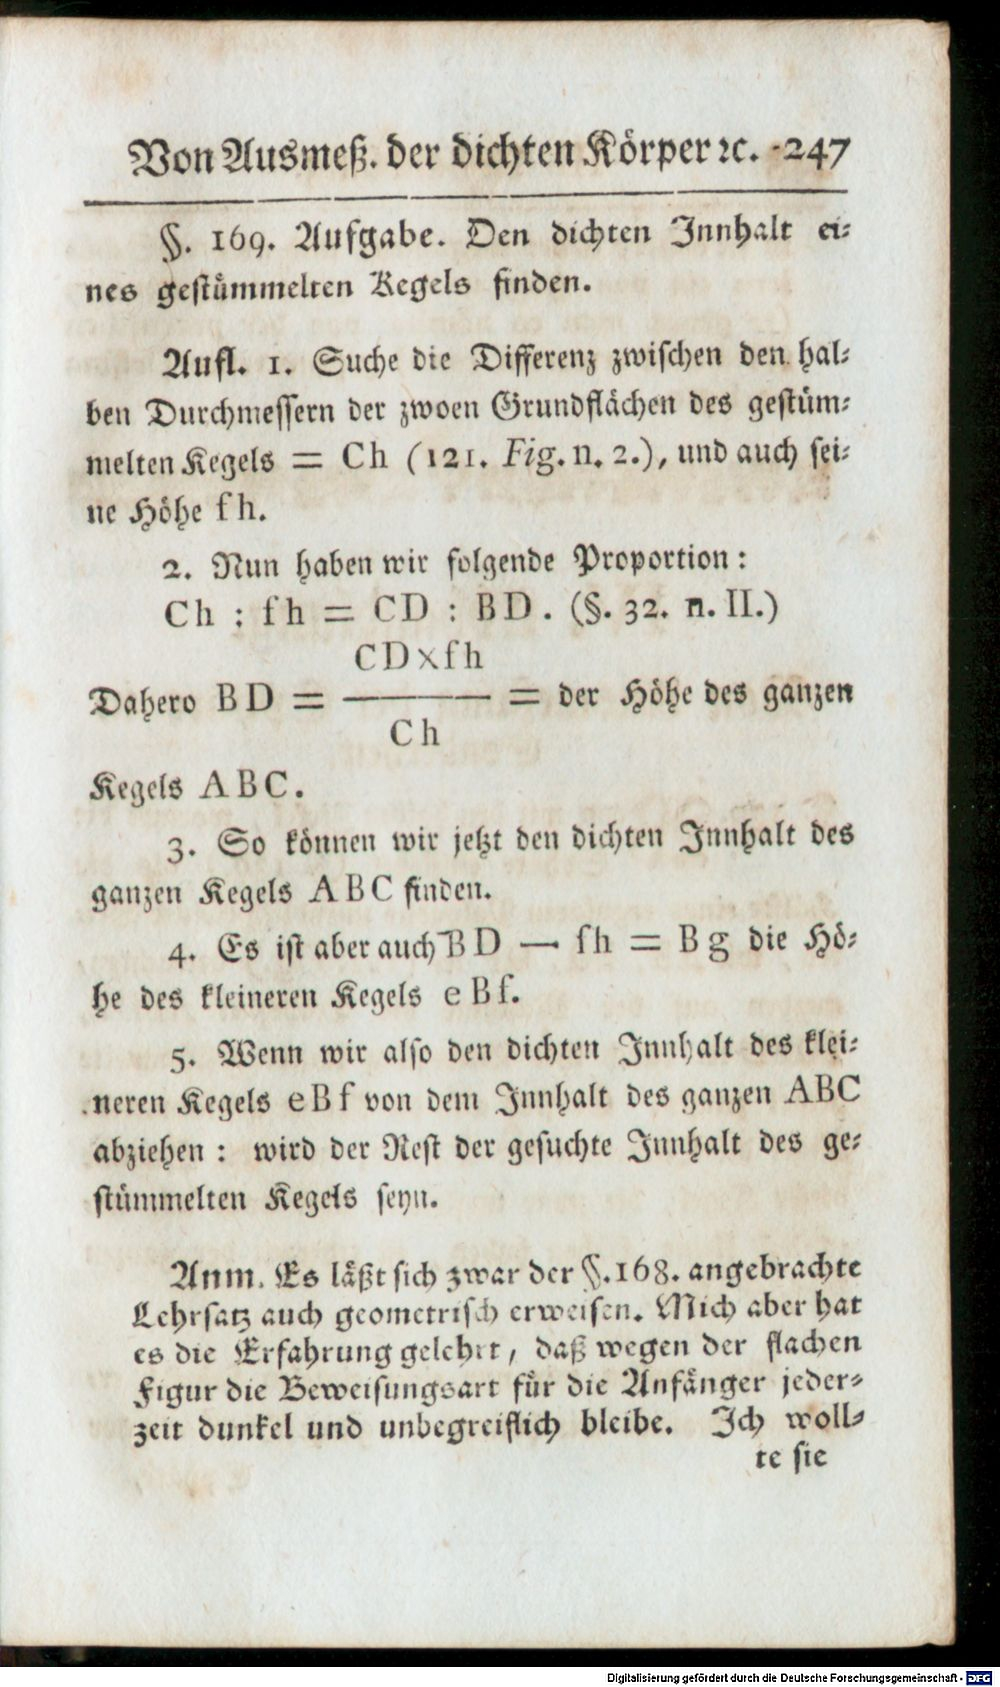 Von Ausmeß. der dichten Körper ꝛc. 247
§. 169. Aufgabe. Den dichten Innhalt ei-
nes gestümmelten Kegels finden.
Aufl. 1. Suche die Differenz zwischen den hal-
ben Durchmessern der zwoen Grundflächen des gestüm-
melten Kegels = Ch (121. Fig. n. 2.), und auch sei-
ne Höhe fh.
2. Nun haben wir folgende Proportion:
Ch : fh = CD : BD. (§. 32. n. II.)
CD×fh
Dahero BD = ——— = der Höhe des ganzen
Ch
Kegels ABC.
3. So können wir jetzt den dichten Innhalt des
ganzen Kegels ABC finden.
4. Es ist aber auch BD — fh = Bg die Hö-
he des kleineren Kegels eBf.
5. Wenn wir also den dichten Innhalt des klei-
neren Kegels eBf von dem Innhalt des ganzen ABC
abziehen: wird der Rest der gesuchte Innhalt des ge-
stümmelten Kegels seyn.
Anm. Es läßt sich zwar der §. 168. angebrachte
Lehrsatz auch geometrisch erweisen. Mich aber hat
es die Erfahrung gelehrt, daß wegen der flachen
Figur die Beweisungsart für die Anfänger jeder-
zeit dunkel und unbegreiflich bleibe. Ich woll-
te sie
Digitalisierung gefördert durch die Deutsche Forschungsgemeinschaft - DFG